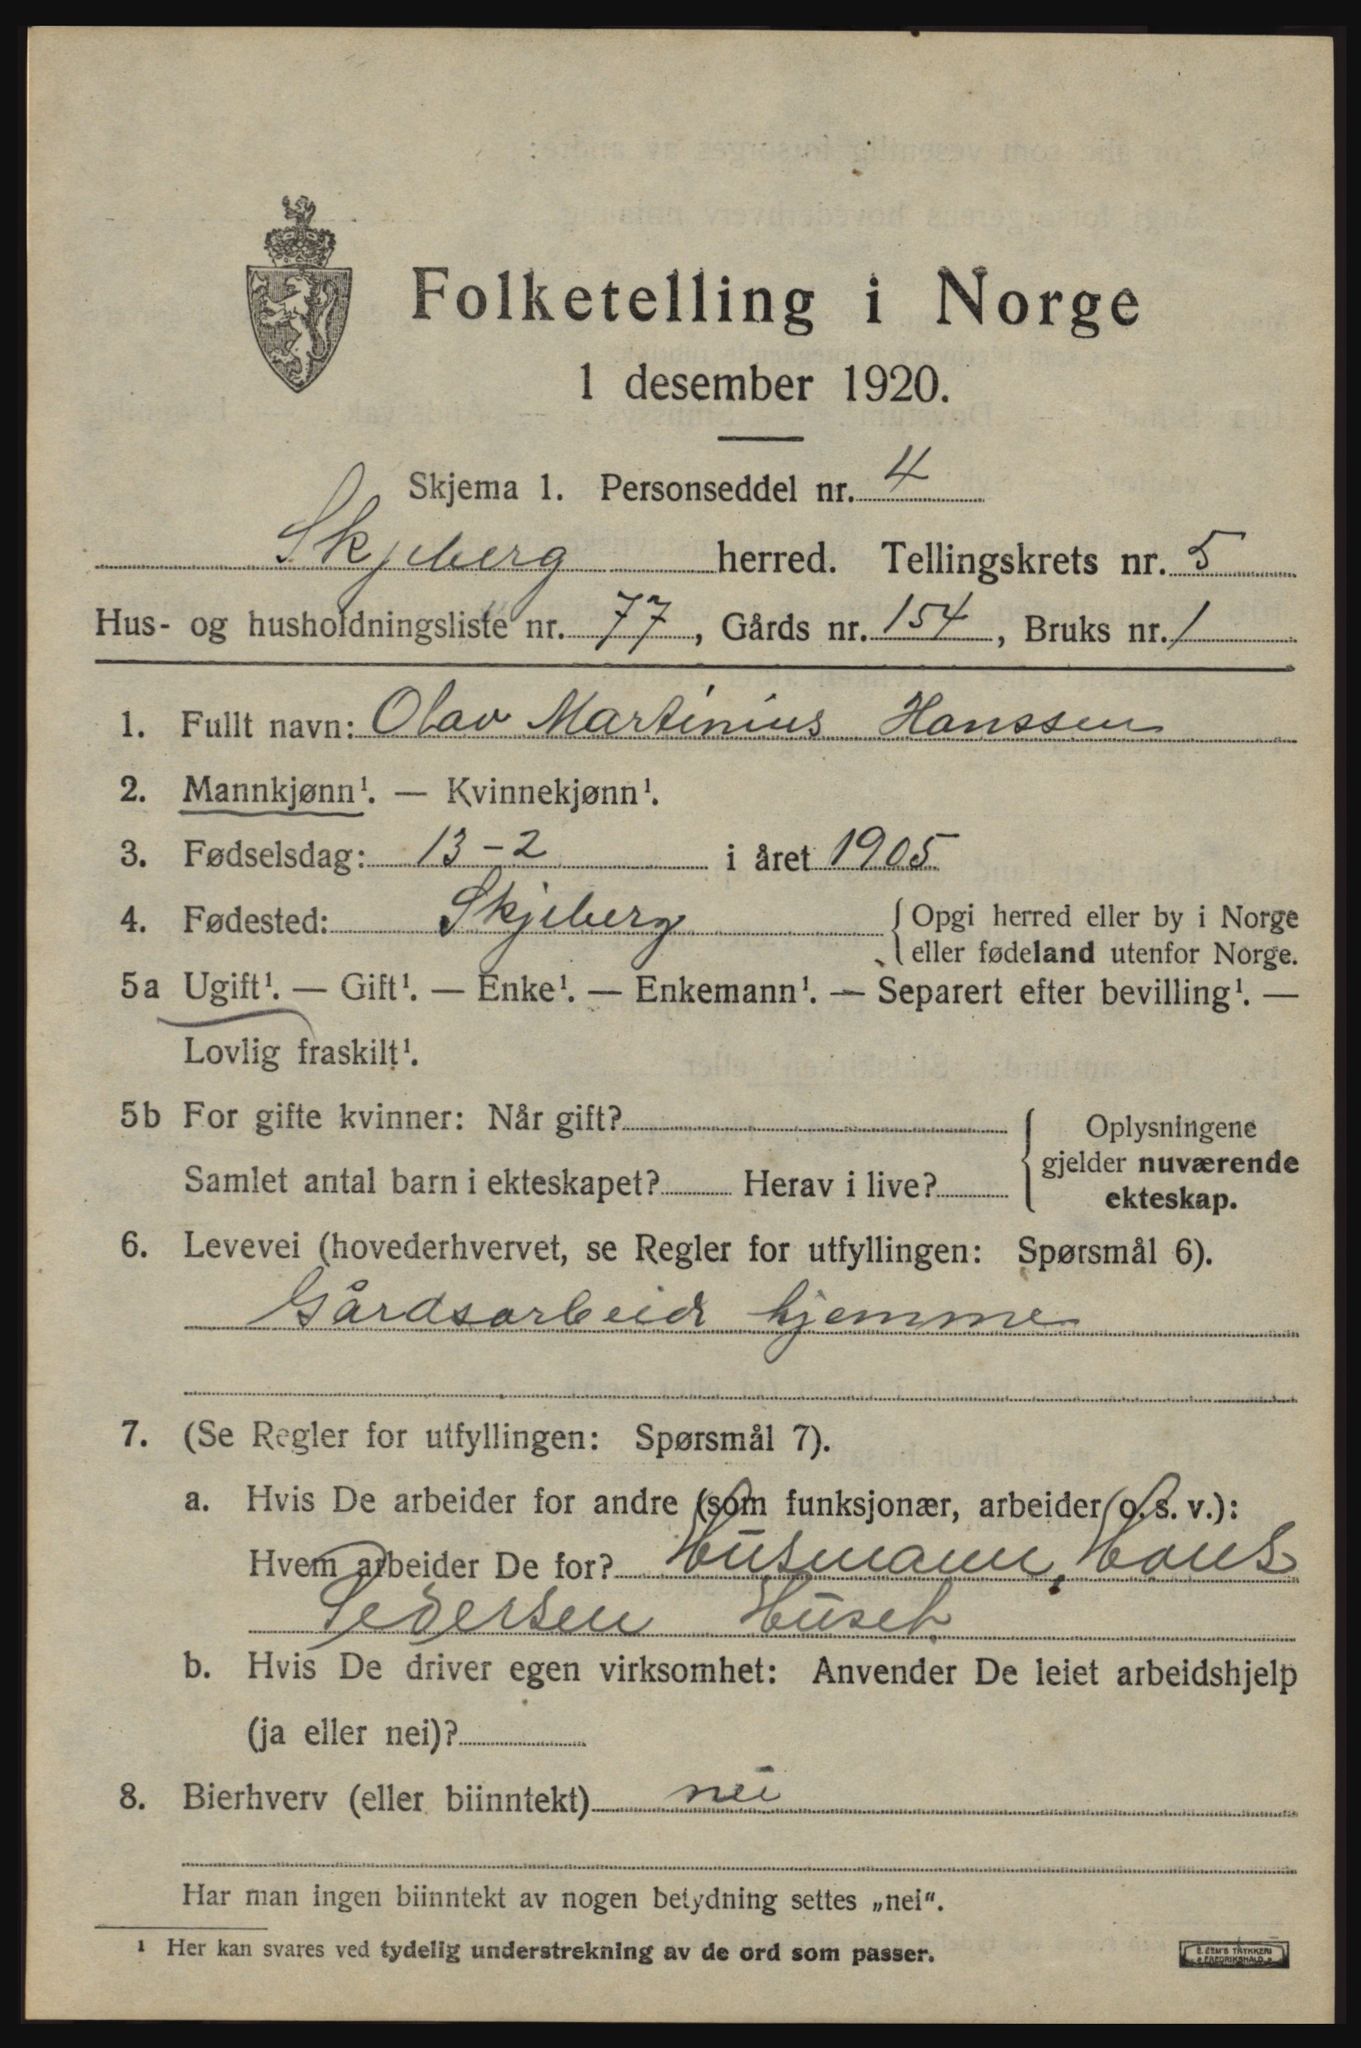 Folketelling i Norge
1 desember 1920.
Skjema 1. Personseddel nr. 4
Skjeberg herred. Tellingskrets nr. 5
Hus- og husholdningsliste nr. 77, Gårds nr. 154, Bruks nr. 1
1. Fullt navn: Olav Martinius Hanssen
2. Mannkjønn¹. — Kvinnekjønn¹.
3. Fødselsdag: 13-2 i året 1905
4. Fødested: Skjeberg { Opgi herred eller by i Norge
eller fødeland utenfor Norge.
5a Ugift¹. — Gift¹. — Enke¹. — Enkemann¹. — Separert efter bevilling¹. —
Lovlig fraskilt¹.
5b For gifte kvinner: Når gift?
Samlet antal barn i ekteskapet? Herav i live?
Oplysningene
gjelder nuværende
ekteskap.
6. Levevei (hovederhvervet, se Regler for utfyllingen: Spørsmål 6).
Gårdsarbeide hjemme
7. (Se Regler for utfyllingen: Spørsmål 7).
a. Hvis De arbeider for andre (som funksjonær, arbeider o. s. v.):
Hvem arbeider De for? Husmann, Hans
Pedersen Huset
b. Hvis De driver egen virksomhet: Anvender De leiet arbeidshjelp
(ja eller nei)?
8. Bierhverv (eller biinntekt) nei
Har man ingen biinntekt av nogen betydning settes „nei“.
¹ Her kan svares ved tydelig understrekning av de ord som passer.
E. SEM'S TRYKKERI
FREDRIKSHALD